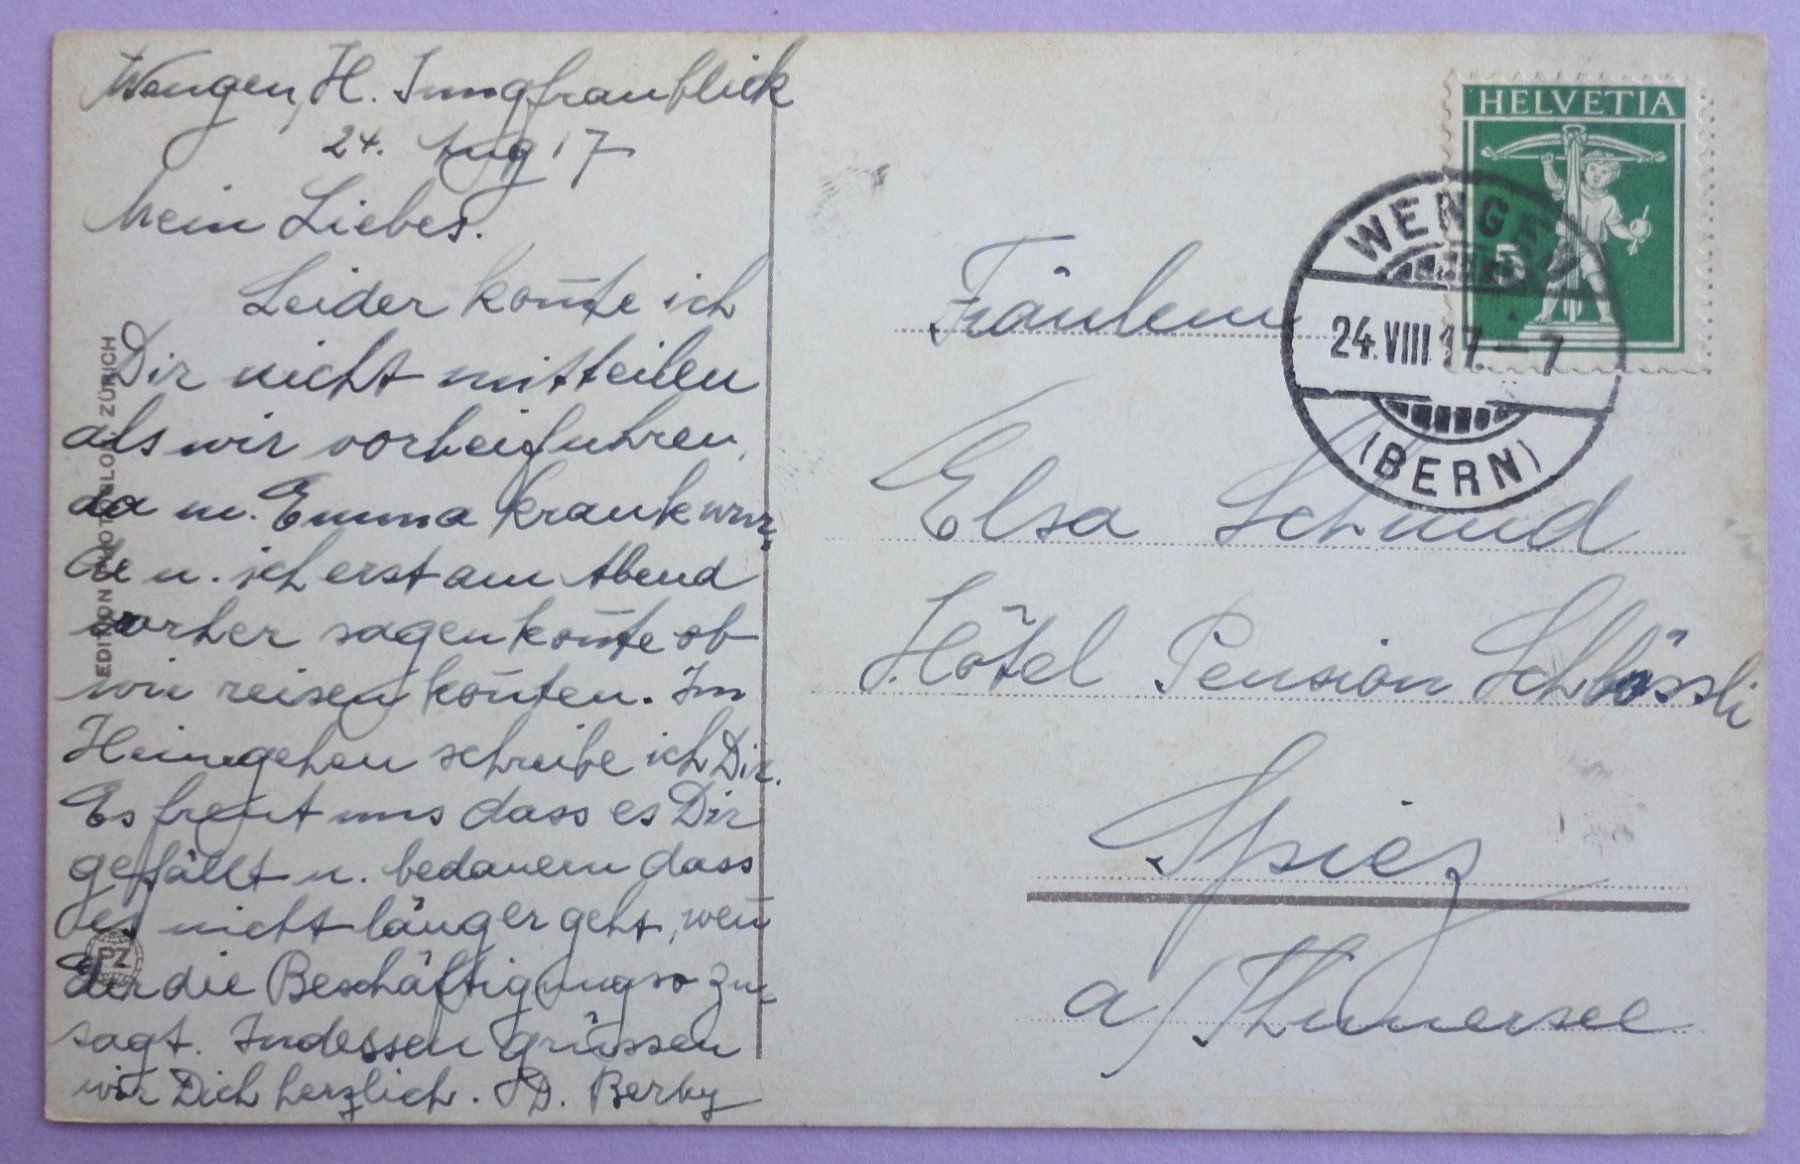 Wengen, H. Jungfraublick
24. Aug 17
Mein Liebes.
Leider kon̄te ich
Dir nicht mitteilen
als wir vorbeifuhren,
da m. Emma krank wur-
de u. ich erst am Abend
vorher sagen kon̄te ob
wir reisen kön̄ten. Im
Heimgehen schreibe ich Dir.
Es freut uns dass es Dir
gefällt u. bedauern dass
es nicht länger geht, wen̄
Dir die Beschäftigung so zu-
sagt. Indessen grüssen
wir Dich herzlich. D. Berby
EDITION PHOTOGLOB ZÜRICH
PZ
HELVETIA
5
WENGEN
24.VIII.17.–7
(BERN)
Fräulein
Elsa Schmid
Hôtel Pension Schlössli
Spiez
a/Thunersee